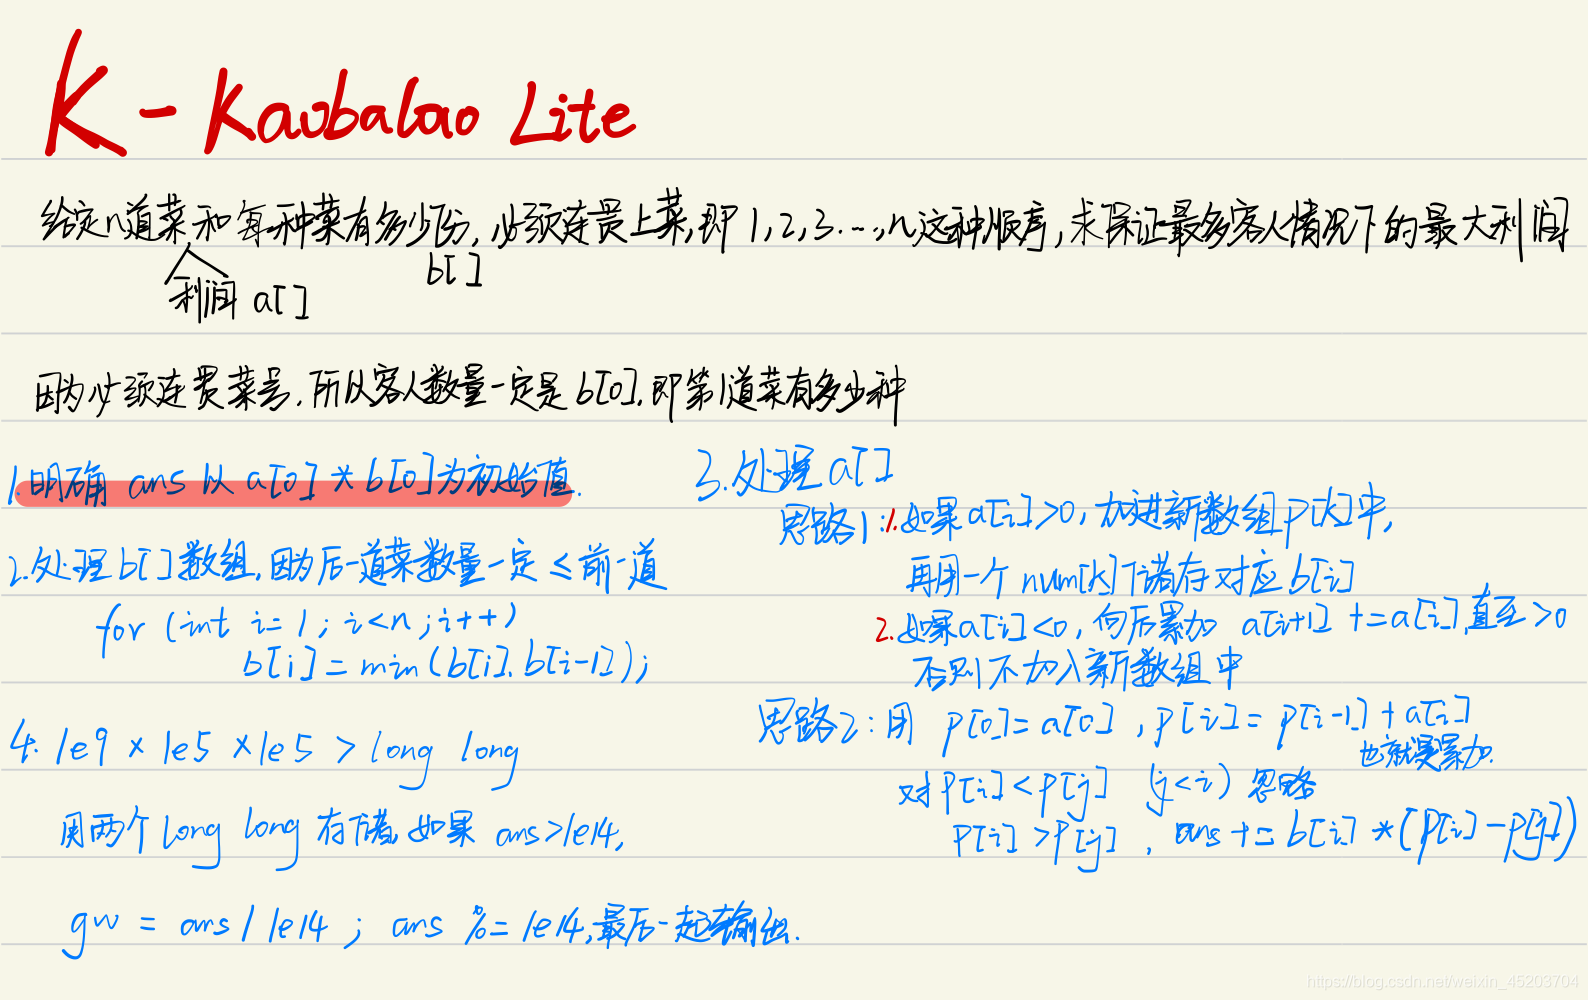 K - Kaobalao Lite
给定n道菜和每一种菜有多少份,必须连贯上菜,即1,2,3...,n这种顺序,求保证最多客人情况下的最大利润
利润 a[]
b[]
因为必须连贯菜号,所以客人数量一定是b[0],即第1道菜有多少种
1.明确 ans 以 a[0] * b[0]为初始值.
2.处理b[]数组,因为后一道菜数量一定≤前一道
for (int i=1; i<n; i++)
b[i]=min(b[i],b[i-1]);
4. 1e9 × 1e5 × 1e5 > long long
用两个long long 存储,如果 ans>1e14,
gw = ans / 1e14 ; ans %= 1e14,最后一起输出.
3.处理 a[]
思路1:1.如果a[i]>0,加进新数组p[k]中,
再用一个 num[k]储存对应 b[i]
2.如果a[i]<0,向后累加 a[i+1] += a[i],直至>0
否则不加入新数组中
思路2:用 p[0]=a[0] ,p[i]=p[i-1]+a[i]
也就是累加.
对p[i]<p[j] (j<i) 忽略
p[i]>p[j] , ans += b[i] *(p[i]-p[j])
https://blog.csdn.net/weixin_45203704